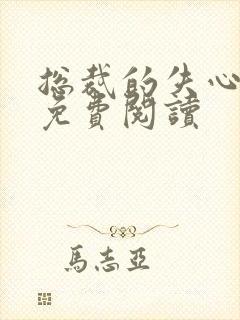 総裁的失心
免費閱讀
馬志亞